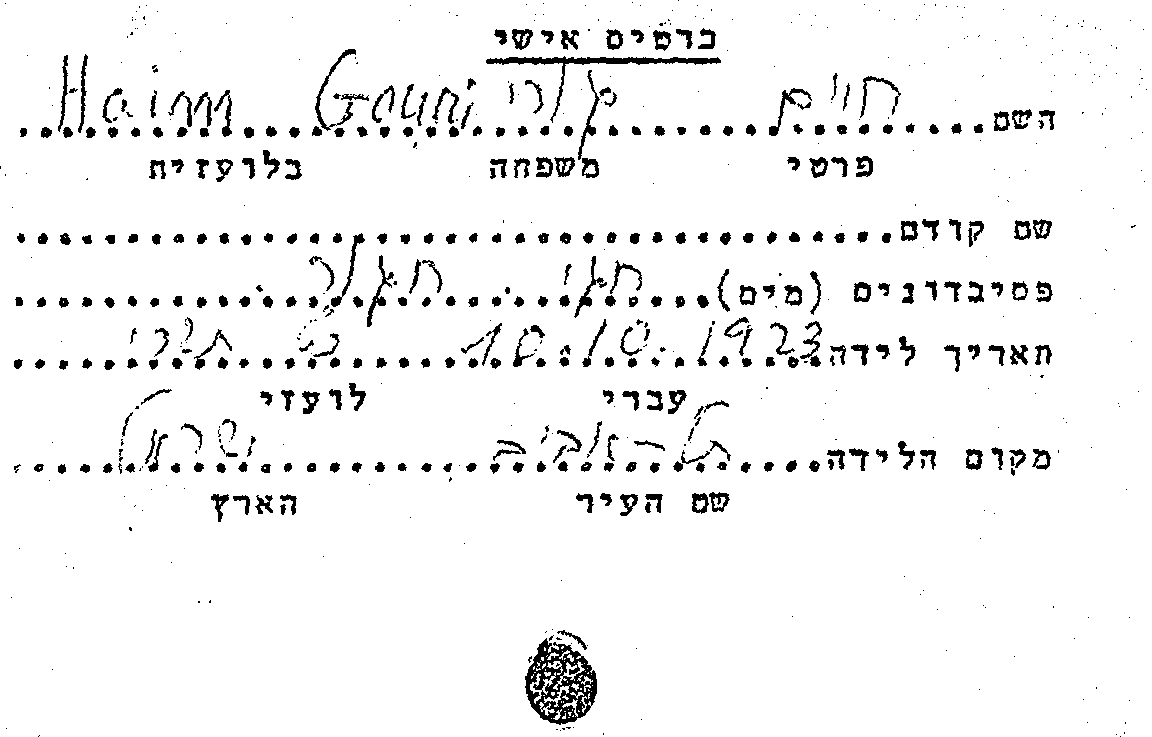 כרטיס אישי
השם חיים גורי Haim Gouri
פרטי משפחה בלועזית
שם קודם
פסיבדונים (מים) חגי חגור
תאריך לידה 10.10.1923 תשרי
עברי לועזי
מקום הלידה תל-אביב ישראל
שם העיר הארץ